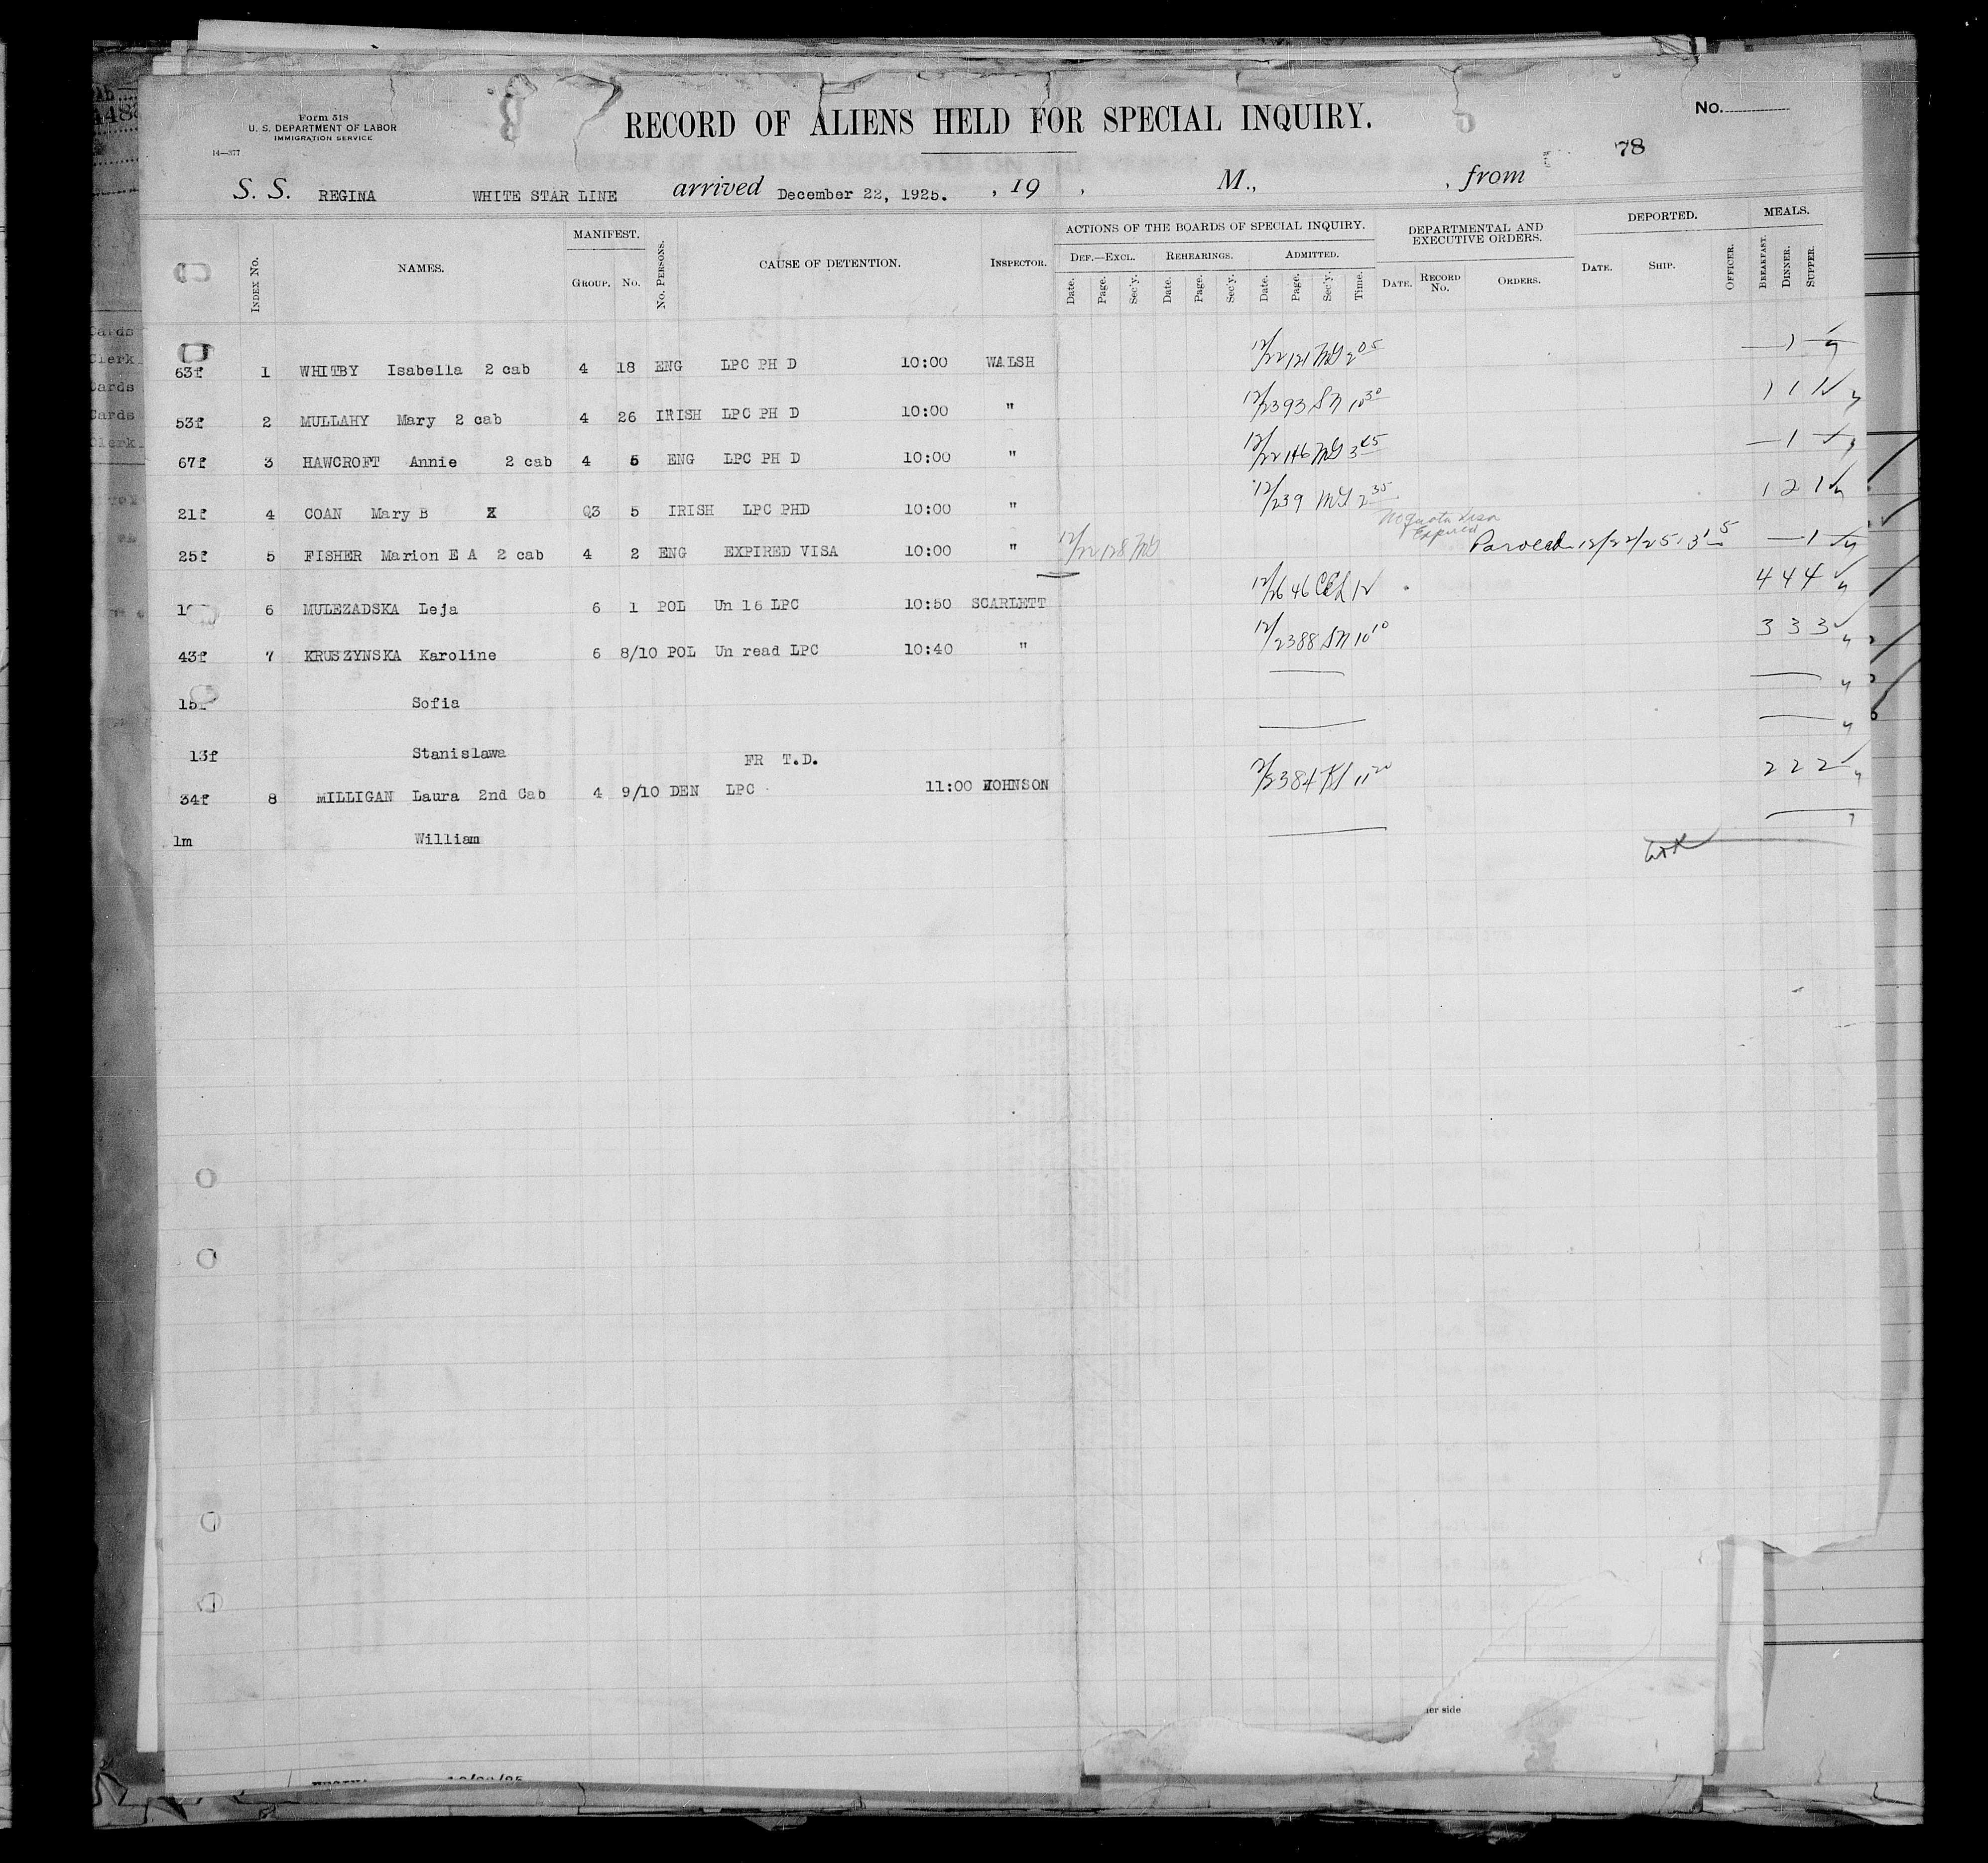 Form 518
U. S. DEPARTMENT OF LABOR
IMMIGRATION SERVICE
14—377
RECORD OF ALIENS HELD FOR SPECIAL INQUIRY.
No.
78
S. S. REGINA WHITE STAR LINE arrived December 22, 1925. , 19 , M., , from
INDEX No. NAMES. MANIFEST. GROUP. No. No. PERSONS. CAUSE OF DETENTION. INSPECTOR. ACTIONS OF THE BOARDS OF SPECIAL INQUIRY. DEPARTMENTAL AND EXECUTIVE ORDERS. DEPORTED. MEALS.
DEF.—EXCL. REHEARINGS. ADMITTED.
Date. Page. Sec'y. Date. Page. Sec'y. Date. Page. Sec'y. Time. DATE. RECORD No. ORDERS. DATE. SHIP. OFFICER. BREAKFAST. DINNER. SUPPER.
63f 1 WHITBY Isabella 2 cab 4 18 ENG LPC PH D 10:00 WALSH 12/22 121 2 05 — 1
53f 2 MULLAHY Mary 2 cab 4 26 IRISH LPC PH D 10:00 " 12/23 93 SN 10 30 1 1 1
67f 3 HAWCROFT Annie 2 cab 4 5 ENG LPC PH D 10:00 " 12/22 146 3 45 — 1
21f 4 COAN Mary B X Q3 5 IRISH LPC PHD 10:00 " 12/23 9 2 35 1 2 1
Quota Visa
Expired
25f 5 FISHER Marion E A 2 cab 4 2 ENG EXPIRED VISA 10:00 " 12/22 128 Paroled 12/22/25 3 15 — 1
6 MULEZADSKA Leja 6 1 POL Un 16 LPC 10:50 SCARLETT 12/26 46 12 4 4 4
43f 7 KRUSZYNSKA Karoline 6 8/10 POL Un read LPC 10:40 " 12/23 88 SN 10 10 3 3 3
15f Sofia
13f Stanislawa
FR T.D.
34f 8 MILLIGAN Laura 2nd Cab 4 9/10 DEN LPC 11:00 JOHNSON 12/23 84 11 20 2 2 2
1m William
her side